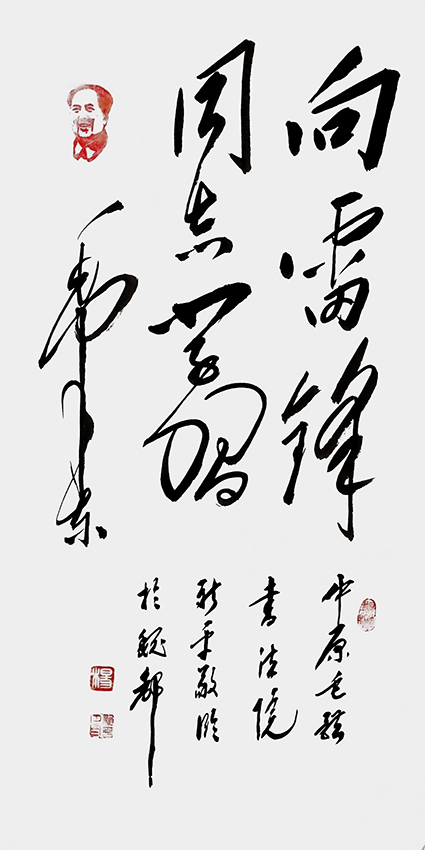 向雷锋
同志学习
毛泽东
中原毛体
书法院
新平敬临
于魏都